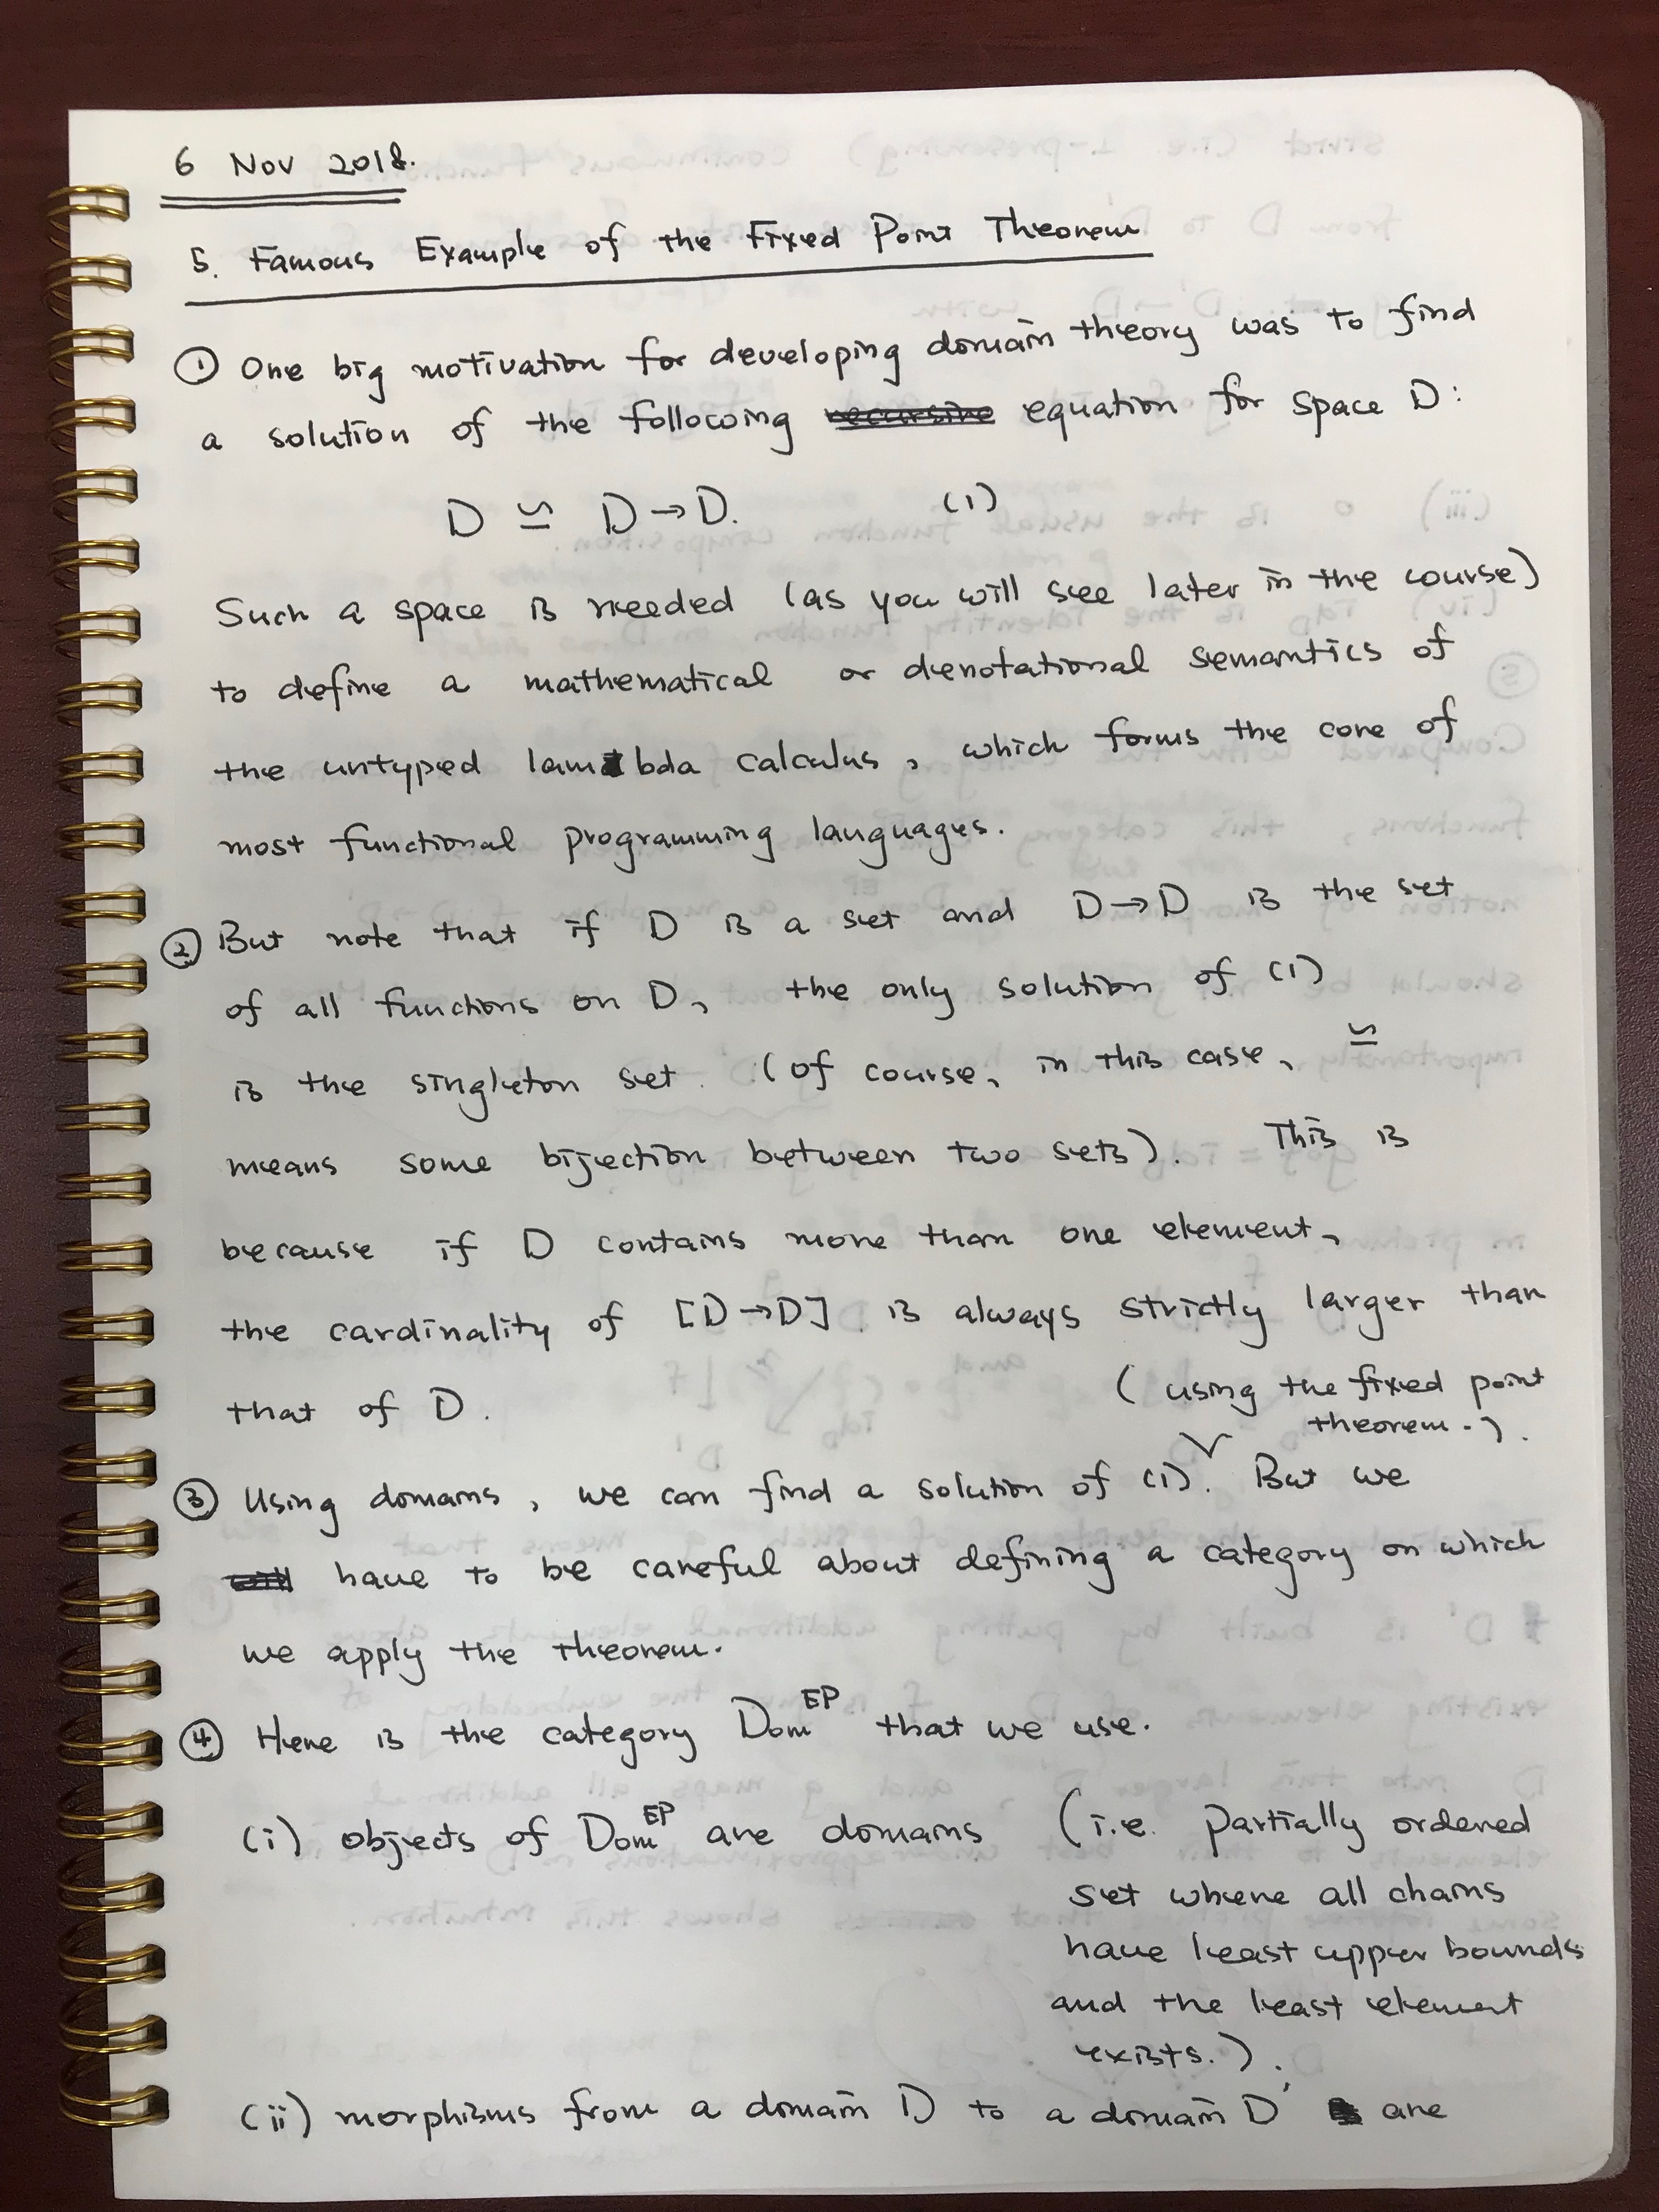 6 Nov 2018.
5. Famous Example of the Fixed Point Theorem
① One big motivation for developing domain theory was to find
a solution of the following recursive equation for space D:
D ≅ D→D. (1)
Such a space is needed (as you will see later in the course)
to define a mathematical or denotational semantics of
the untyped lambda calculus, which forms the core of
most functional programming languages.
② But note that if D is a set and D→D is the set
of all functions on D, the only solution of (1)
is the singleton set. (Of course, in this case, ≅
means some bijection between two sets). This is
because if D contains more than one element,
the cardinality of [D→D] is always strictly larger than
that of D.
(using the fixed point
theorem.).
③ Using domains, we can find a solution of (1). But we
have to be careful about defining a category on which
we apply the theorem.
④ Here is the category Dom^EP that we use.
(i) objects of Dom^EP are domains (i.e. partially ordered
set where all chains
have least upper bounds
and the least element
exists.).
(ii) morphisms from a domain D to a domain D' are